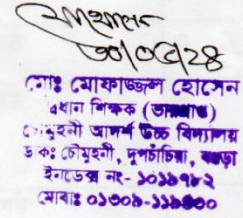 ৩০/০৫/২৪
মোঃ মোফাজ্জল হোসেন
প্রধান শিক্ষক (ভারপ্রাপ্ত)
চৌমুহনী আদর্শ উচ্চ বিদ্যালয়
ডাকঃ চৌমুহনী, দুপচাঁচিয়া, বগুড়া
ইনডেক্স নং- ১০১৯৭৮২
মোবাঃ ০১৩০৯-১১৯৪০০